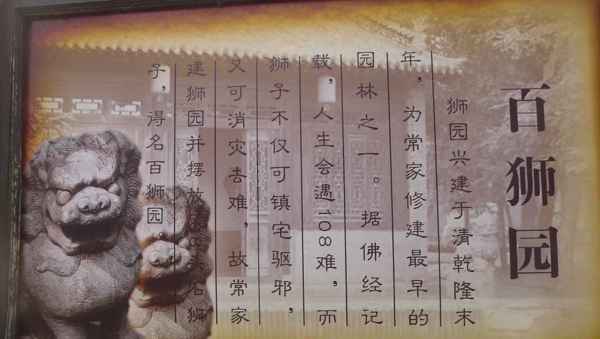 百狮园
狮园兴建于清乾隆末
年，为常家修建最早的
园林之一。据佛经记
载，人生会遇108难，而
狮子不仅可镇宅驱邪，
又可消灾去难，故常家
建狮园并摆放108只石狮
子，得名百狮园。